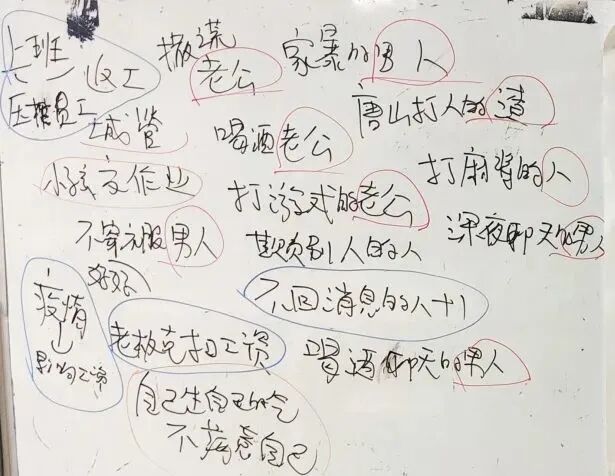 上班 收工
压榨员工
撒谎
老公
家暴的男人
城管
喝酒老公
唐山打人的渣
小孩交作业
打游戏的老公
打麻将的人
不穿衣服男人
欺负别人的人
深夜聊天的男人
好烦
不回消息的人+1
疫情
↓
影响工资
老板克扣工资
喝酒聊天的男人
自己生自己的气
不满意自己